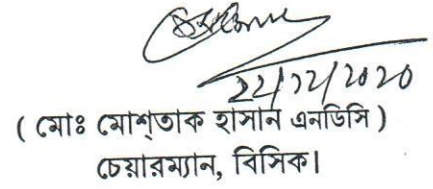 22/12/2020
( মোঃ মোশ্‌তাক হাসান এনডিসি )
চেয়ারম্যান, বিসিক।